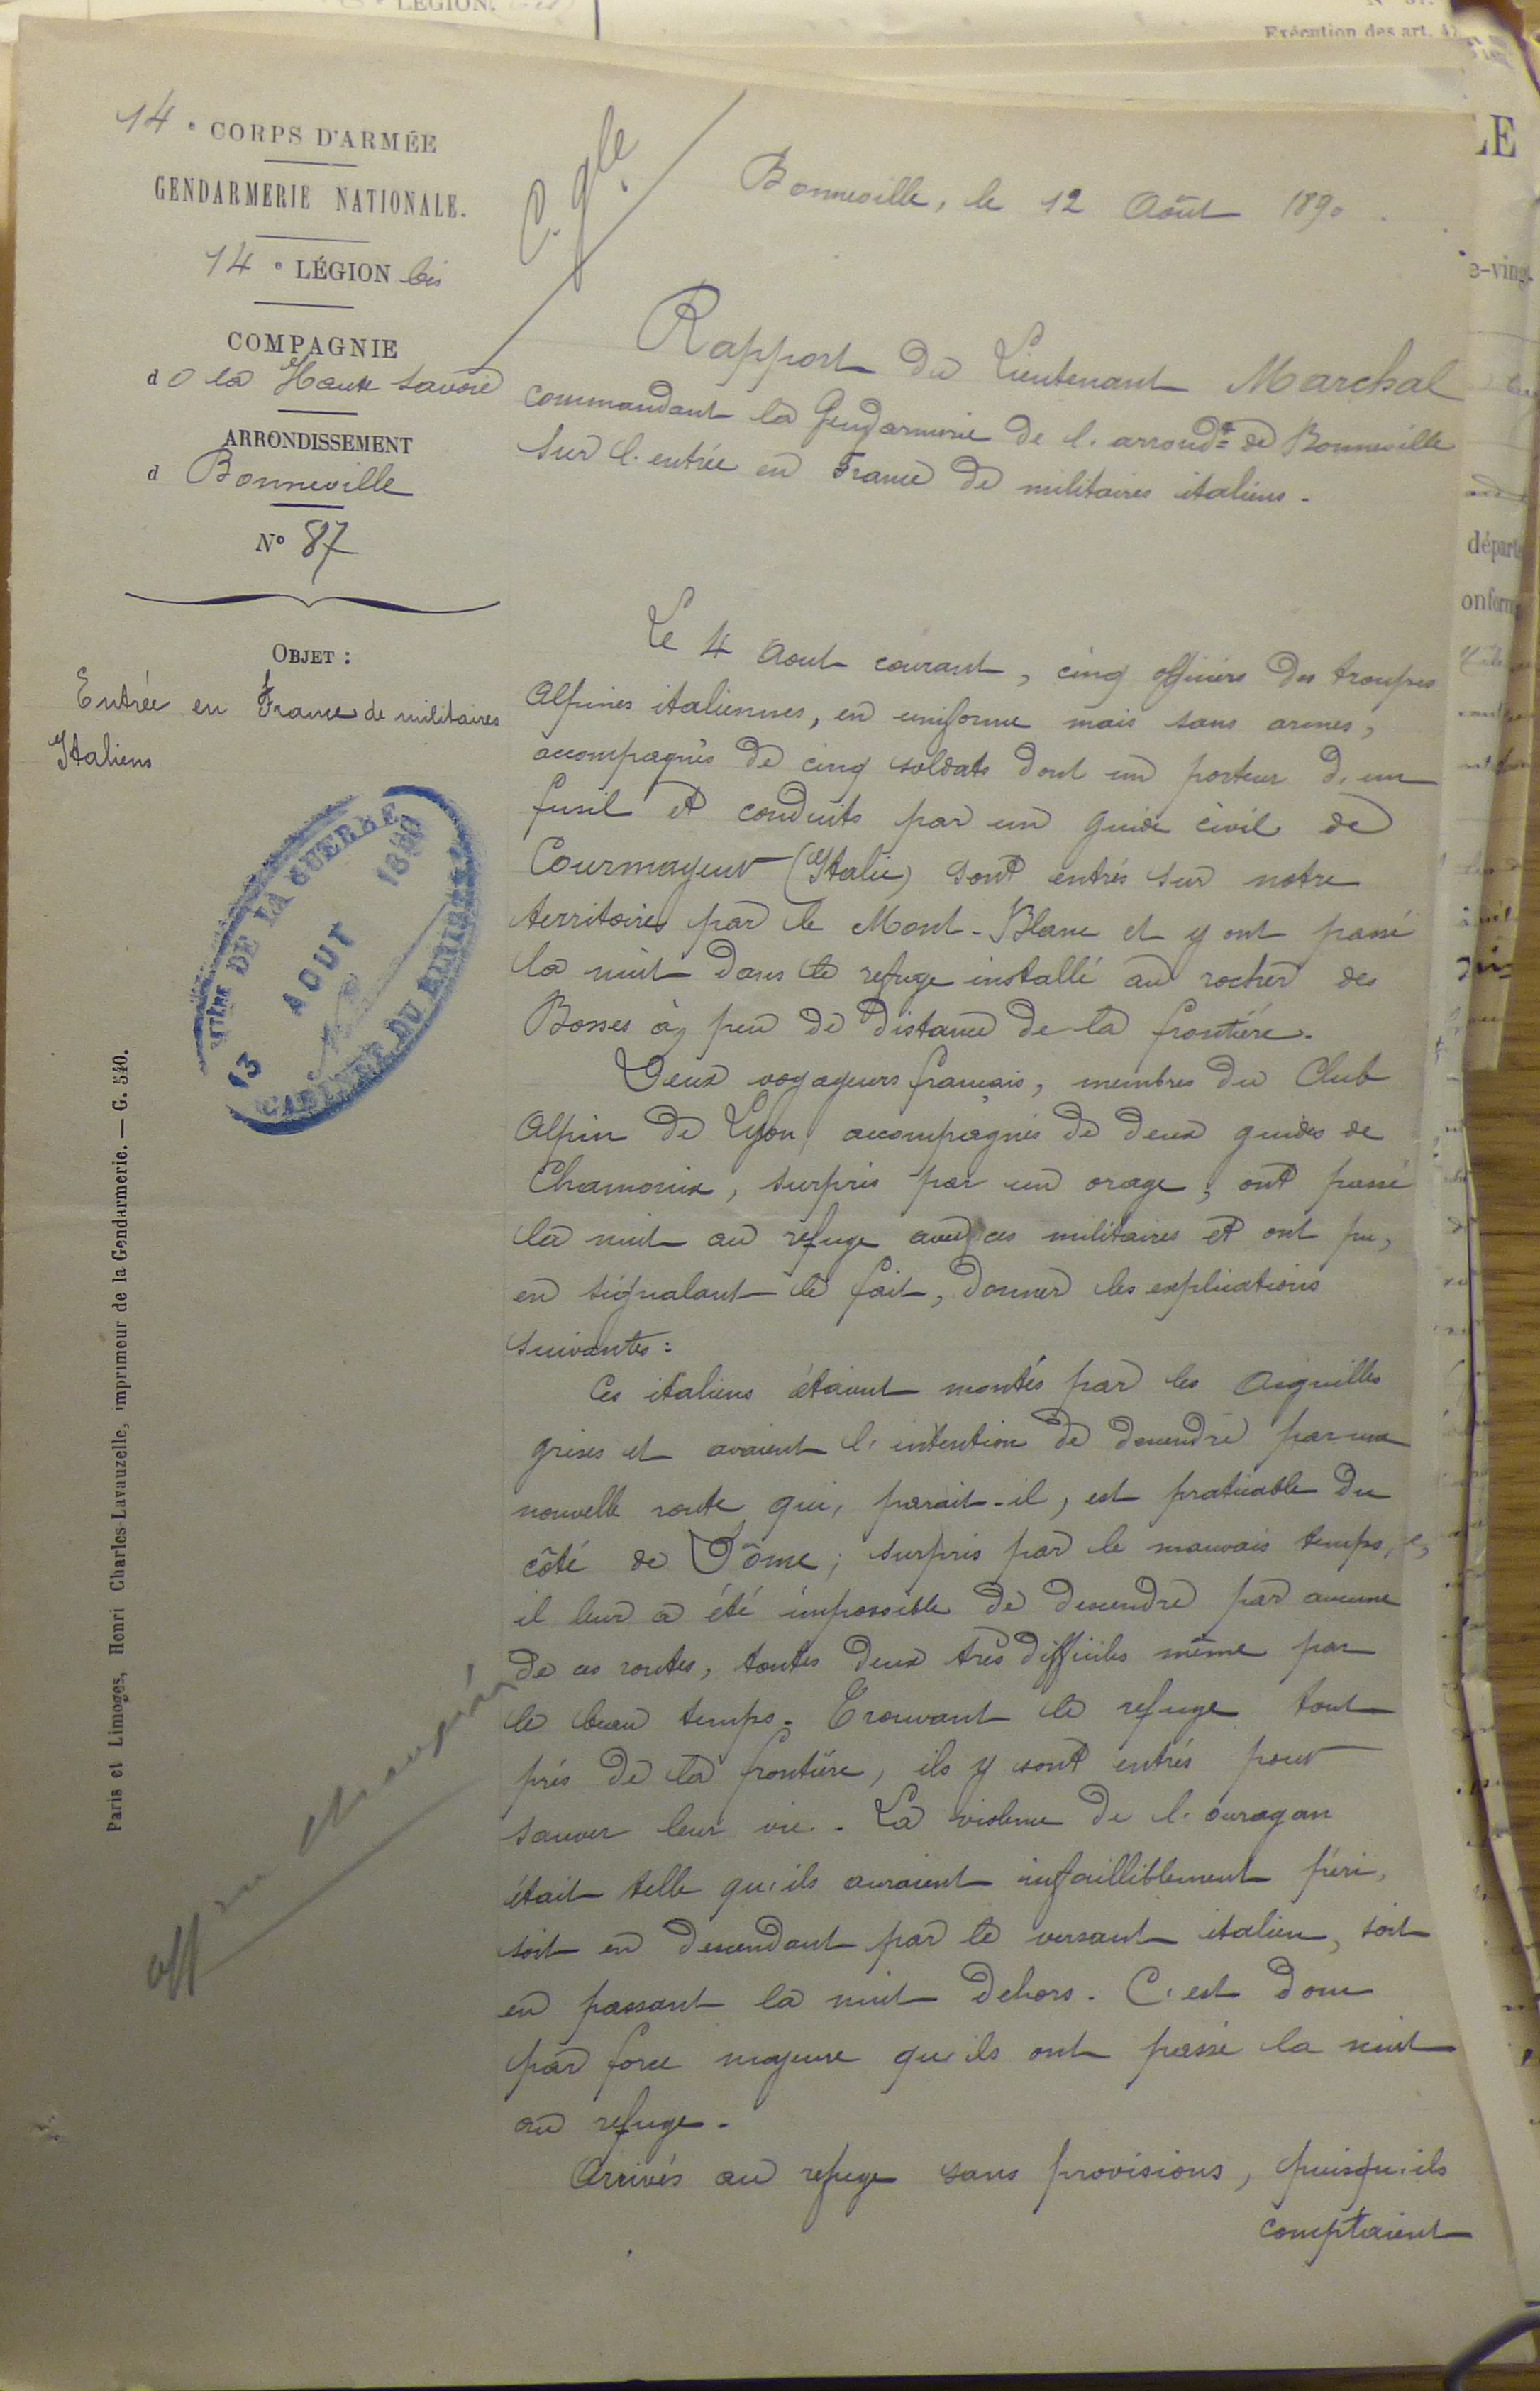 LÉGION.
Exécution des art. 42
14e CORPS D'ARMÉE
GENDARMERIE NATIONALE.
14e LÉGION bis
COMPAGNIE
de la Haute Savoie
ARRONDISSEMENT
d Bonneville
N° 87
OBJET :
Entrée en France de militaires
Italiens
MTÈRE DE LA GUERRE
13 AOUT 1890
CABINET DU MINISTRE
Paris et Limoges, Henri Charles-Lavauzelle, imprimeur de la Gendarmerie. — G. 540.
C. gle
Bonneville, le 12 Août 1890.
Rapport du Lieutenant Marchal
commandant la Gendarmerie de l'arrondt de Bonneville
sur l'entrée en France de militaires italiens.
Le 4 Aout courant, cinq officiers des troupes
Alpines italiennes, en uniforme mais sans armes,
accompagnés de cinq soldats dont un porteur d'un
fusil et conduits par un guide civil de
Courmayeur (Italie) sont entrés sur notre
territoire par le Mont-Blanc et y ont passé
la nuit dans le refuge installé au rocher des
Bosses à peu de distance de la frontière.
Deux voyageurs français, membres du Club
Alpin de Lyon, accompagnés de deux guides de
Chamonix, surpris par un orage, ont passé
la nuit au refuge avec ces militaires et ont pu,
en signalant le fait, donner les explications
suivantes :
Ces italiens étaient montés par les Aiguilles
grises et avaient l'intention de descendre par une
nouvelle route qui, parait-il, est praticable du
côté de Dôme ; surpris par le mauvais temps,
il leur a été impossible de descendre par aucune
de ces routes, toutes deux très difficiles même par
le beau temps. Trouvant le refuge tout
près de la frontière, ils y sont entrés pour
sauver leur vie. La violence de l'ouragan
était telle qu'ils auraient infailliblement péri,
soit en descendant par le versant italien, soit
en passant la nuit dehors. C'est donc
par force majeure qu'ils ont passé la nuit
au refuge.
Arrivés au refuge sans provisions, puisqu'ils
comptaient